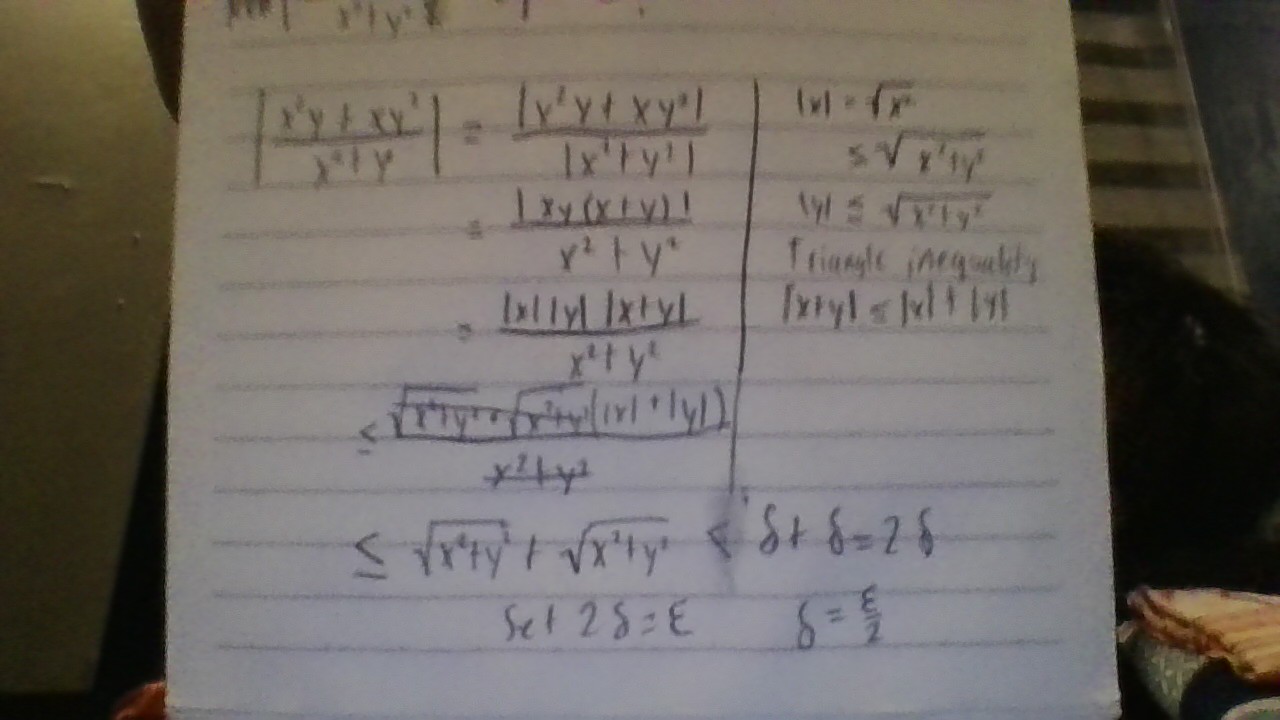 x²+y²
|x²y + xy²| / |x²+y²| = |x²y + xy²| / |x²+y²|
= |xy(x+y)| / x²+y²
= |x||y||x+y| / x²+y²
≤ √x²+y² · √x²+y² (|x|+|y|) / x²+y²
|x| = √x²
≤ √x²+y²
|y| ≤ √x²+y²
Triangle inequality
|x+y| ≤ |x|+|y|
≤ √x²+y² + √x²+y² < δ+δ=2δ
Set 2δ=ε δ=ε/2